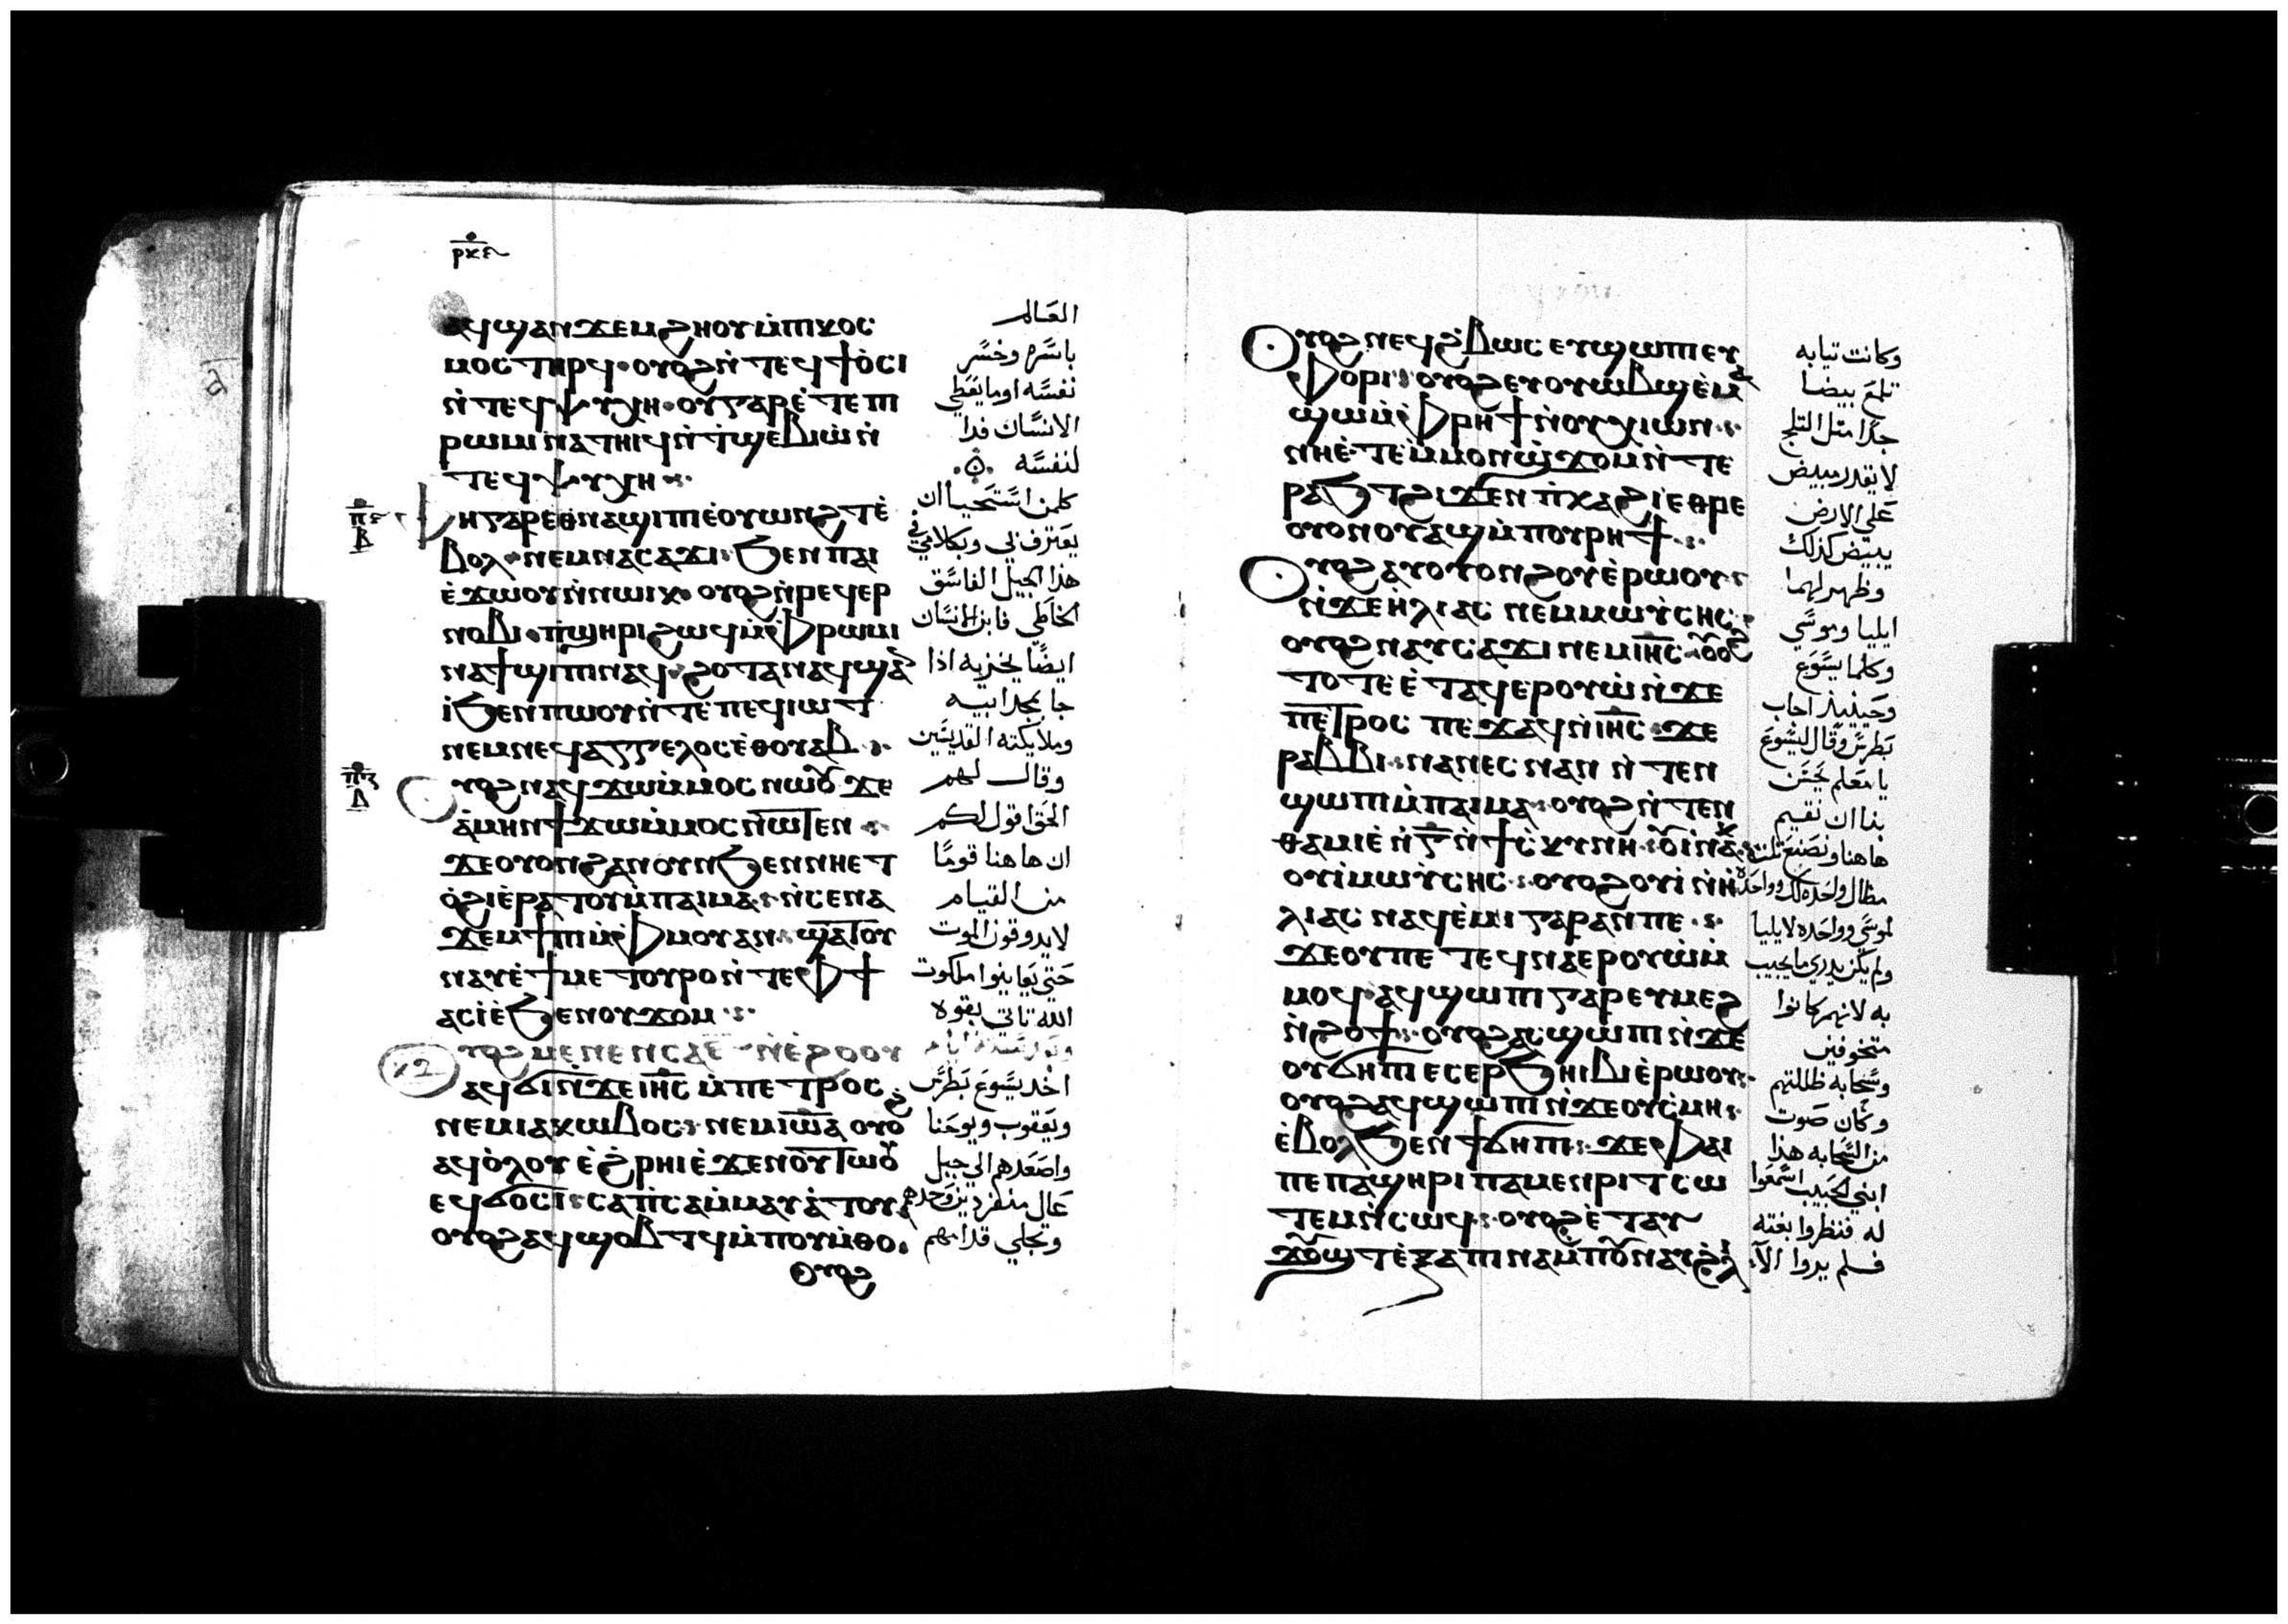 ⲣⲕⲉ
ⲁϥϣⲁⲛϫⲉⲙϩⲏⲟⲩ ⲙ̀ⲡⲓⲕⲟⲥ
ⲙⲟⲥ ⲧⲏⲣϥ· ⲟⲩⲟϩ ⲛ̀ⲧⲉϥϯⲟ̀ⲥⲓ
ⲛ̀ⲧⲉϥⲯⲩⲭⲏ· ⲟⲩⲅⲁⲣ ⲉ̀ⲧⲉ ⲡⲓ
ⲣⲱⲙⲓ ⲛⲁⲧⲏⲓϥ ⲛ̀ⲧϣⲉⲃⲓⲱ̀ ⲛ̀
ⲧⲉϥⲯⲩⲭⲏ
ⲫⲏ ⲅⲁⲣ ⲉⲑⲛⲁϣⲓⲡⲓ ⲉ̀ⲟⲩⲱⲛϩⲧ ⲉ̀
ⲃⲟⲗ· ⲛⲉⲙ ⲛⲁⲥⲁϫⲓ· ϧⲉⲛ ⲡⲁⲓ
ϫⲱⲟⲩ ⲛ̀ⲛⲱⲓⲕ· ⲟⲩⲟϩ ⲛ̀ⲣⲉϥⲉⲣ
ⲛⲟⲃⲓ· ⲡϣⲏⲣⲓ ϩⲱϥ ⲙ̀ⲫⲣⲱⲙⲓ
ⲛⲁϯϣⲓⲡⲓ ⲛⲁϥ· ϩⲟⲧⲁⲛ ⲁϥϣⲁⲛ
ⲓ̀ ϧⲉⲛ ⲡⲱⲟⲩ ⲛ̀ⲧⲉ ⲡⲉϥⲓⲱⲧ
ⲛⲉⲙ ⲛⲉϥⲁⲅⲅⲉⲗⲟⲥ ⲉ̀ⲑⲟⲩⲁⲃ
ⲟⲩⲟϩ ⲛⲁϥϫⲱ ⲙ̀ⲙⲟⲥ ⲛⲱⲟⲩ ϫⲉ
ⲁ̀ⲙⲏⲛ ϯϫⲱ ⲙ̀ⲙⲟⲥ ⲛⲱⲧⲉⲛ
ϫⲉ ⲟⲩⲟⲛ ϩⲁⲛⲟⲩⲟⲛ ϧⲉⲛ ⲛⲏⲉⲧ
ⲟ̀ϩⲓ ⲉ̀ⲣⲁⲧⲟⲩ ⲙ̀ⲡⲁⲓⲙⲁ· ⲛ̀ⲥⲉⲛⲁ
ϫⲉⲙϯⲡⲓ ⲙ̀ⲫⲙⲟⲩ ⲁⲛ· ϣⲁⲧⲟⲩ
ⲛⲁⲩ ⲉ̀ϯⲙⲉⲧⲟⲩⲣⲟ ⲛ̀ⲧⲉ ⲫϯ
ⲁⲥⲓ̀ ϧⲉⲛ ⲟⲩϫⲟⲙ
ⲟⲩⲟϩ ⲙⲉⲛⲉⲛⲥⲁ ⲋ̅ ⲛ̀ⲉ̀ϩⲟⲟⲩ
ⲁϥϭⲓ ⲛ̀ϫⲉ ⲓⲏ̅ⲥ̅ ⲙ̀ⲡⲉⲧⲣⲟⲥ
ⲛⲉⲙ ⲓⲁⲕⲱⲃⲟⲥ· ⲛⲉⲙ ⲓⲱ̅ⲁ̅ ⲟⲩⲟϩ
ⲁϥⲟ̀ⲗⲟⲩ ⲉ̀ϩⲣⲏⲓ ⲉ̀ϫⲉⲛ ⲟⲩⲧⲱⲟⲩ
ⲉϥϭⲟⲥⲓ· ⲥⲁⲡ̀ⲥⲁ ⲙ̀ⲙⲁⲩⲁ̀ⲧⲟⲩ
ⲟⲩⲟϩ ⲁϥϣⲟⲃⲧϥ ⲙ̀ⲡⲟⲩⲙ̀ⲑⲟ
ⲟⲩⲟϩ
العالم
باسره وخسر
نفسه اوما يعطي
الانسان فدا
لنفسه
كلمن استحيا ان
يعترف بي وبكلامي في
هذا الجيل الفاسق
الخاطي فابن الانسان
ايضا يخزيه اذا
جا بمجد ابيه
وملايكته القديسين
وقال لهم
الحق اقول لكم
ان هاهنا قوما
من القيام
لا يدوقون الموت
حتي يعاينوا ملكوت
الله تاتي بقوه
اخد يسوع بطرس
ويعقوب ويوحنا
واصعدهم الي جبل
عال منفردين وحدهم
وتجلي قدامهم
ⲟⲩⲟϩ ⲛⲉϥϩ̀ⲃⲱⲥ ⲉⲩϣⲱⲡⲓ ⲉⲩ
ⲫⲟⲣⲓ· ⲟⲩⲟϩ ⲉⲩⲟⲩⲱⲃϣ ⲉ̀ⲙⲁ
ϣⲱ ⲙ̀ⲫⲣⲏϯ ⲛ̀ⲟⲩⲭⲓⲱⲛ
ⲛⲏⲉ̀ⲧⲉ ⲙ̀ⲙⲟⲛ ϣϫⲟⲙ ⲛ̀ⲧⲉ
ⲣⲁϧⲧ ϩⲓϫⲉⲛ ⲡⲓⲕⲁϩⲓ ⲉ̀ⲑⲣⲉ
ⲟⲩⲟⲛ ⲟⲩⲃⲁϣ ⲙ̀ⲡⲟⲩⲣⲏϯ
ⲟⲩⲟϩ ⲁⲩⲟⲩⲟⲛϩⲟⲩ ⲉ̀ⲣⲱⲟⲩ
ⲛ̀ϫⲉ ⲏ̀ⲗⲓⲁⲥ ⲛⲉⲙ ⲙⲱⲩ̀ⲥⲏⲥ
ⲟⲩⲟϩ ⲛⲁⲩⲥⲁϫⲓ ⲛⲉⲙ ⲓⲏ̅ⲥ̅ ⲟⲩⲟϩ
ⲧⲟⲧⲉ ⲉ̀ⲧⲁϥⲉⲣⲟⲩⲱ̀ ⲛ̀ϫⲉ
ⲡⲉⲧⲣⲟⲥ ⲡⲉϫⲁϥ ⲛ̀ⲓⲏ̅ⲥ̅ ϫⲉ
ⲣⲁⲃⲃⲓ· ⲛⲁⲛⲉⲥ ⲛⲁⲛ ⲛ̀ⲧⲉⲛ
ϣⲱⲡⲓ ⲙ̀ⲡⲁⲓⲙⲁ· ⲟⲩⲟϩ ⲛ̀ⲧⲉⲛ
ⲑⲁⲙⲓⲉ̀ ⲅ̅ ⲛ̀ⲥⲕⲩⲛⲏ· ⲟⲩⲓ̀ ⲛⲁⲕ
ⲟⲩⲓ̀ ⲙ̀ⲙⲱⲩ̀ⲥⲏⲥ· ⲟⲩⲟϩ ⲟⲩⲓ̀ ⲛ̀ⲏ̀
ⲗⲓⲁⲥ ⲛⲁϥⲉ̀ⲙⲓ ⲅⲁⲣ ⲁⲛ ⲡⲉ
ϫⲉ ⲟⲩ ⲡⲉⲧⲉϥⲛⲁⲉⲣⲟⲩⲱ̀ ⲙ̀
ⲙⲟϥ· ⲁϥϣⲱⲡⲓ ⲅⲁⲣ ⲉⲩⲙⲉϩ
ⲛ̀ϩⲟϯ· ⲟⲩⲟϩ ⲁⲥϣⲱⲡⲓ ⲛ̀ϫⲉ
ⲟⲩϭⲏⲡⲓ ⲉⲥⲉⲣϧⲏⲓⲃⲓ ⲉ̀ⲣⲱⲟⲩ
ⲟⲩⲟϩ ⲁϥϣⲱⲡⲓ ⲛ̀ϫⲉ ⲟⲩⲥ̀ⲙⲏ
ⲉ̀ⲃⲟⲗ ϧⲉⲛ ϯϭⲏⲡⲓ· ϫⲉ ⲫⲁⲓ
ⲡⲉ ⲡⲁϣⲏⲣⲓ ⲡⲁⲙⲉⲛⲣⲓⲧ ⲥⲱ
ⲧⲉⲙ ⲛ̀ⲥⲱϥ· ⲟⲩⲟϩ ⲉ̀ⲧⲁⲩ
وكانت تيابه
تلمع بيضا
جدا متل التلج
لا يقدر مبيض
علي الارض
يبيض كذلك
وظهر لهما
ايليا وموسي
وكلما يسوع
وحينيذ اجاب
بطرس وقال ليسوع
يا معلم يحسن
بنا ان نقيم
هاهنا ونصنع تلت
مظال واحده لك وواحده
لموسي وواحده لايليا
ولم يكن يدري ما يجيب
به لانهم كانوا
متخوفين
وسحابه ظللتهم
وكان صوت
من السحابه هذا
ابني الحبيب اسمعوا
له فنظروا بغته
فلم يروا